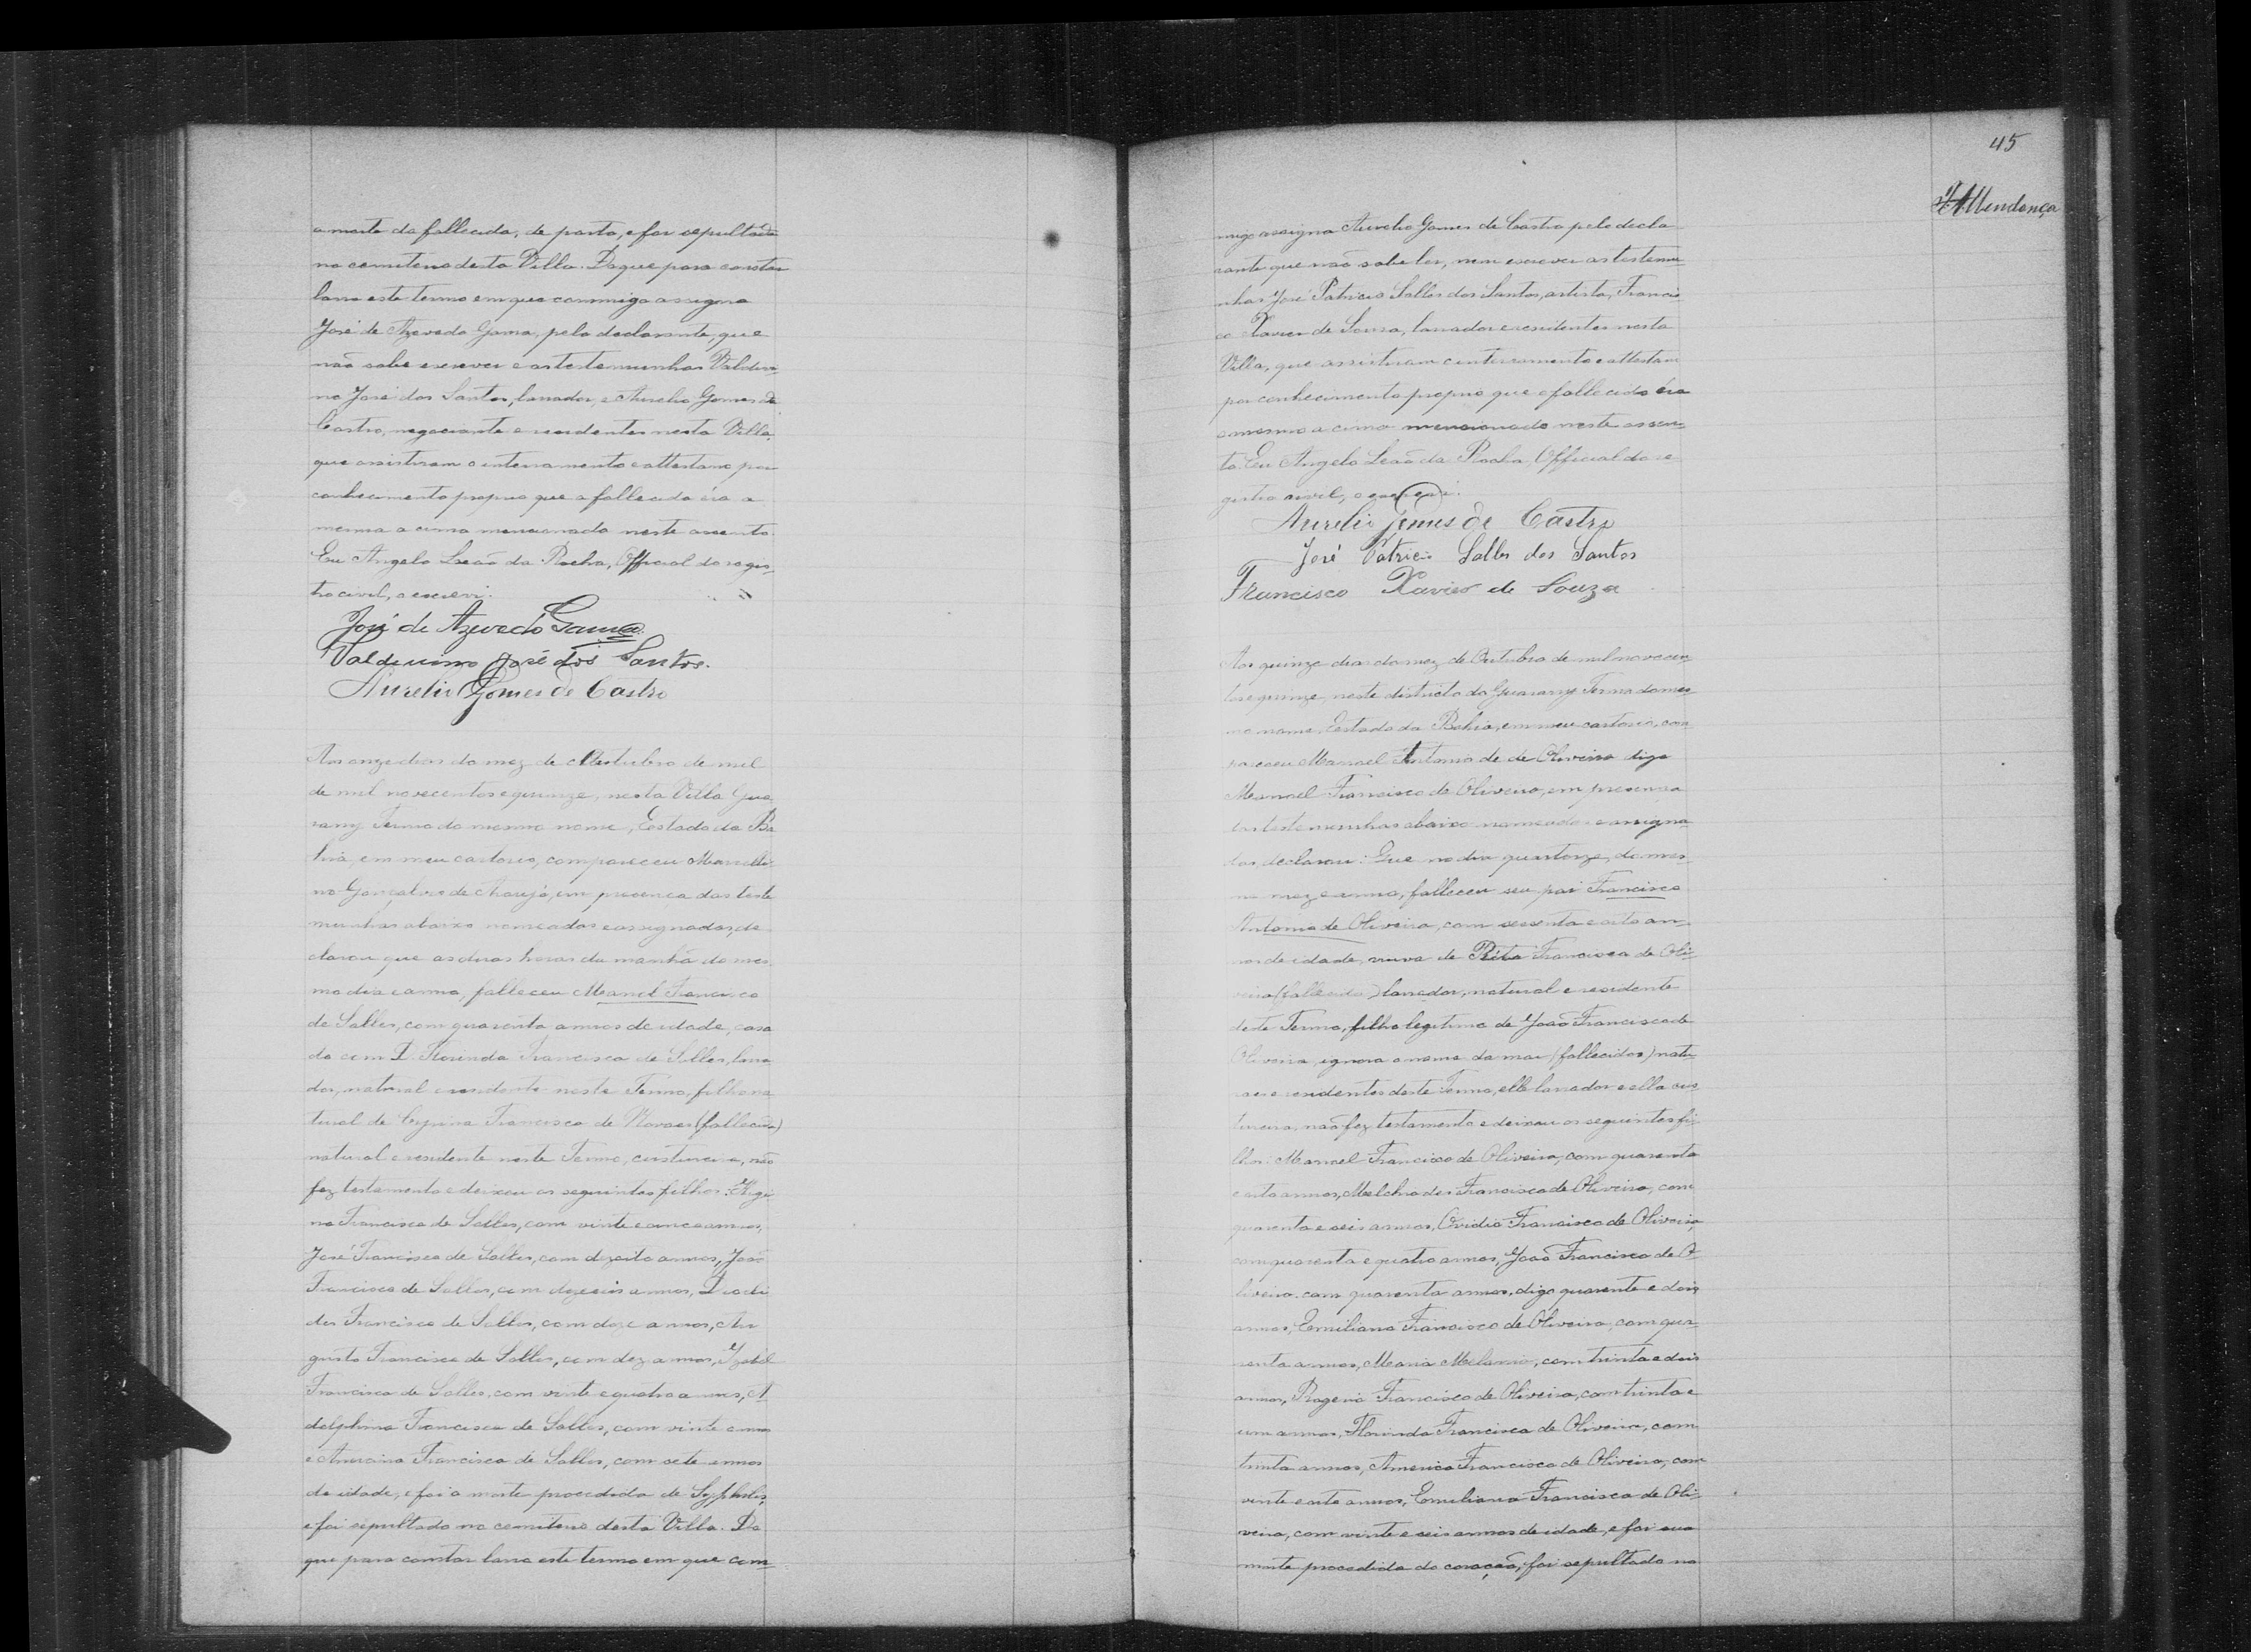 a morte da fallecida, de parto, e foi sepultada
no cemiterio desta Villa. Do que para constar
lavra este termo em que commigo assigna
José de Azevedo Gama, pelo declarante, que
não sabe escrever e as testemunhas Valdivi-
no José dos Santos, lavrador, e Aurelio Gomes de
Castro, negociante e residentes nesta Villa,
que assistiram o enterramento e attestam por
conhecimento proprio que a fallecida éra a
mesma a cima mencionada neste assento.
Eu Angelo Leão da Rocha, Official do regis-
tro civil, o escrevi.
José de Azevedo Gama
Valdevino José dos Santos.
Aurelio Gomes de Castro
Aos onze dias do mez de Outubro de mil
de mil novecentos e quinze, nesta Villa Gua
rany Termo do mesmo nome, Estado da Ba
hia, em meu cartorio, compareceu Marcelli-
no Gonçalves de Araujo, em presença das teste
munhas abaixo nomeadas e assignadas, de
clarou que as duas horas da manhã do mes-
mo dia e anno, falleceu Manoel Francisco
de Salles, com quarenta annos de idade, casa
do com D. Florinda Francisca de Salles, lavra
dor, natural e residente neste Termo, filho na
tural de Francisca de Novaes (fallecida)
natural e residente neste Termo, custureira, não
fez testamento e deixou os seguintes filhos: Hygi
no Francisco de Salles, com vinte e cinco annos,
José Francisco de Salles, com dezoito annos, João
Francisco de Salles, com dezeseis annos, Diocli
des Francisco de Salles, com doze annos, Au
gusto Francisco de Salles, com dez annos, Izabel
Francisca de Salles, com vinte e quatro annos, A
dolphina Francisca de Salles, com vinte annos
e Francisca de Salles, com sete annos
de idade, e foi a morte procedida de Syphilis,
e foi sepultado no cemiterio desta Villa. Do
que para constar lavra este termo em que com-
45
Mendonça
migo assigna Aurelio Gomes de Castro pelo decla
rante que não sabe ler, nem escrever as testemu-
nhas José Patricio Salles dos Santos, artista, Francis-
co Xavier de Souza, lavrador e residentes nesta
Villa, que assistiram o enterramento e attestam
por conhecimento proprio que o fallecido éra
o mesmo a cima mencionado neste assen-
to. Eu Angelo Leão da Rocha, Official do re
gistro civil, o escrevi.
Aurelio Gomes de Castro
José Patricio Salles dos Santos
Francisco Xavier de Souza
Aos quinze dias do mez de Outubro de mil novecen-
tos e quinze, neste districto do Guarany Termo do mes-
mo nome, Estado da Bahia, em meu cartorio, com
pareceu Manoel Antonio de de Oliveira digo
Manoel Francisco de Oliveira, em presença
das testemunhas abaixo nomeadas e assigna-
das, declarou: Que no dia quartorze, do mes-
mo mez e anno, falleceu seu pai Francisco
Antonio de Oliveira, com sessenta e oito an-
nos de idade, viuvo de Rita Francisca de Oli-
veira (fallecida) lavrador, natural e residente
deste Termo, filho legitimo de João Francisco de
Oliveira, ignora o nome da mãe (fallecidos) natu-
raes e residentes deste Termo, elle lavrador e ella cus-
tureira, não fez testamento e deixou os seguintes fi-
lhos: Manoel Francisco de Oliveira, com quarenta
e oito annos, Melchiades Francisco de Oliveira, com
quarenta e seis annos, Ovidio Francisco de Oliveira,
com quarenta e quatro annos, João Francisco de O-
liveira com quarenta annos, digo quarenta e dois
annos, Emiliano Francisco de Oliveira, com qua-
renta annos, Maria Melania, com trinta e dois
annos, Rogerio Francisco de Oliveira, com trinta e
um annos, Florinda Francisca de Oliveira, com
trinta annos, Americo Francisco de Oliveira, com
vinte e oito annos, Emiliana Francisca de Oli-
veira, com vinte e seis annos de idade, e foi sua
morte procedida do coração, foi sepultado no